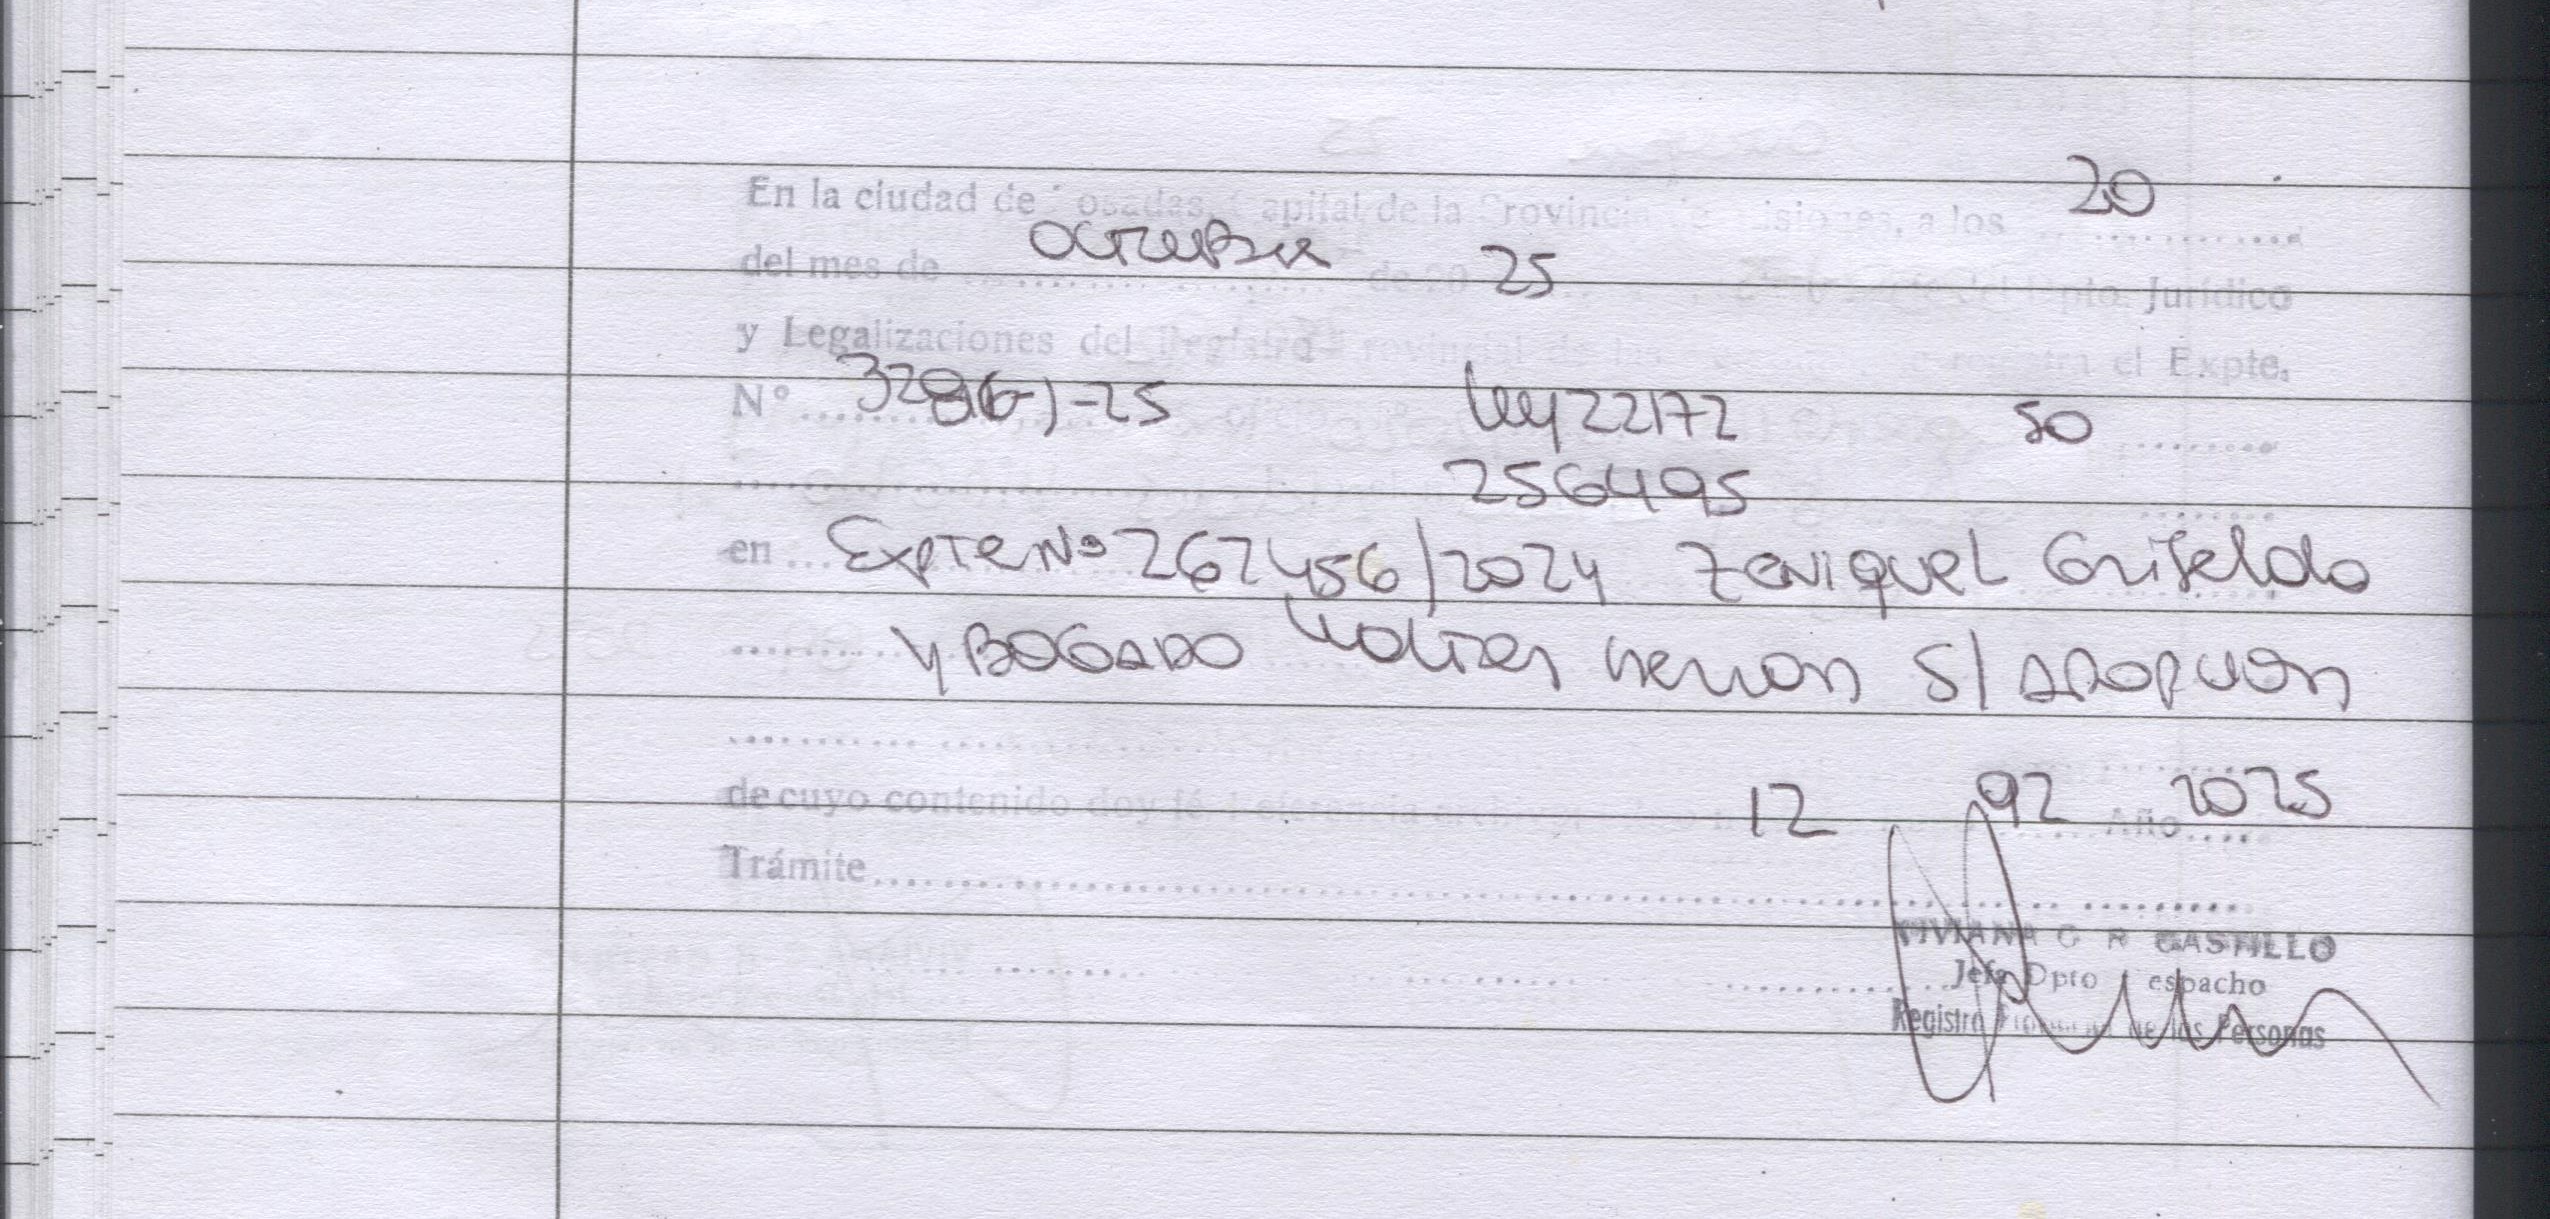 20
En la ciudad de Posadas, Capital de la Provincia de Misiones, a los ....................
octubre 25
del mes de .................... de 20 ........ Dpto. Jurídico
y Legalizaciones del Registro Provincial de las registra el Expte.
Nº .... 328(G)-25 Ley 22172 50
256495
en ... Expte Nº 262456/2024 Zeniquel Griselda
y BOGADO Walter Hernan S/ ADOPCION
12 92 2025
de cuyo contenido doy fé. Referencia Año ....
Trámite ....................
VIVIANA C R CASTILLO
Jefa Dpto Despacho
Registro Provincial de las Personas